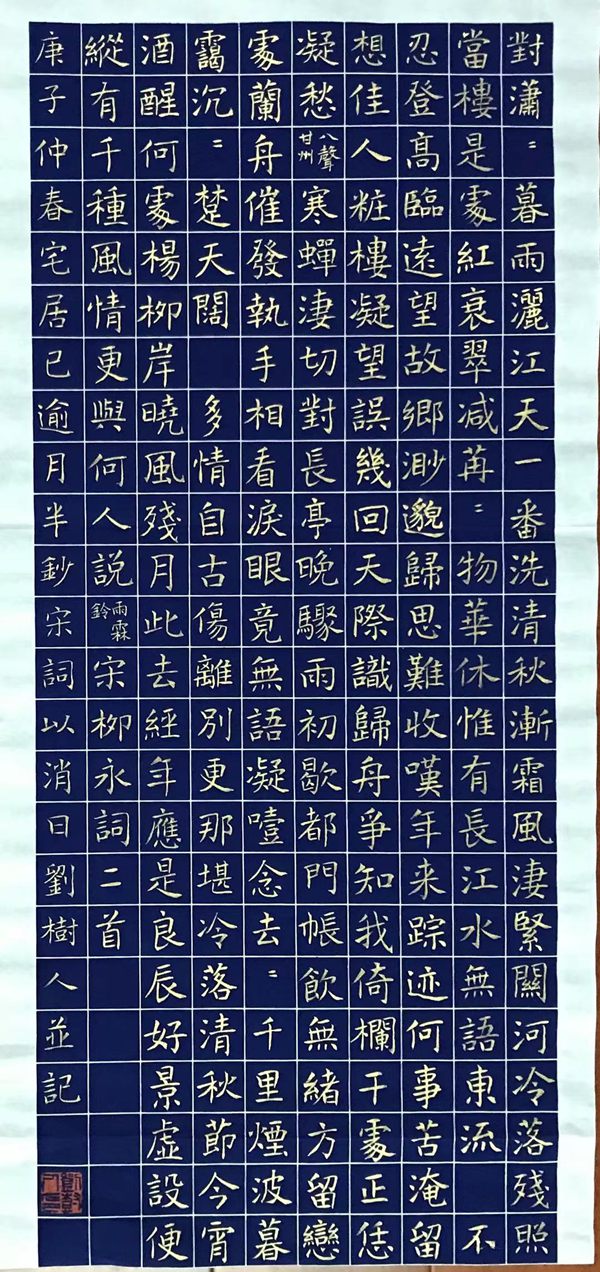 對瀟〻暮雨灑江天一番洗清秋漸霜風淒緊關河冷落殘照
當樓是處紅衰翠減苒〻物華休惟有長江水無語東流　不
忍登高臨遠望故鄉渺邈歸思難收嘆年来踪迹何事苦淹留
想佳人粧樓凝望誤幾回天際識歸舟爭知我倚欄干處正恁
凝愁八聲甘州寒蟬淒切對長亭晚驟雨初歇都門帳飲無緒方留戀
處蘭舟催發執手相看淚眼竟無語凝噎念去〻千里煙波暮
靄沉〻楚天闊　多情自古傷離別更那堪冷落清秋節今宵
酒醒何處楊柳岸曉風殘月此去經年應是良辰好景虛設便
縱有千種風情更與何人說雨霖鈴宋柳永詞二首
庚子仲春宅居已逾月半鈔宋詞以消日劉樹人並記